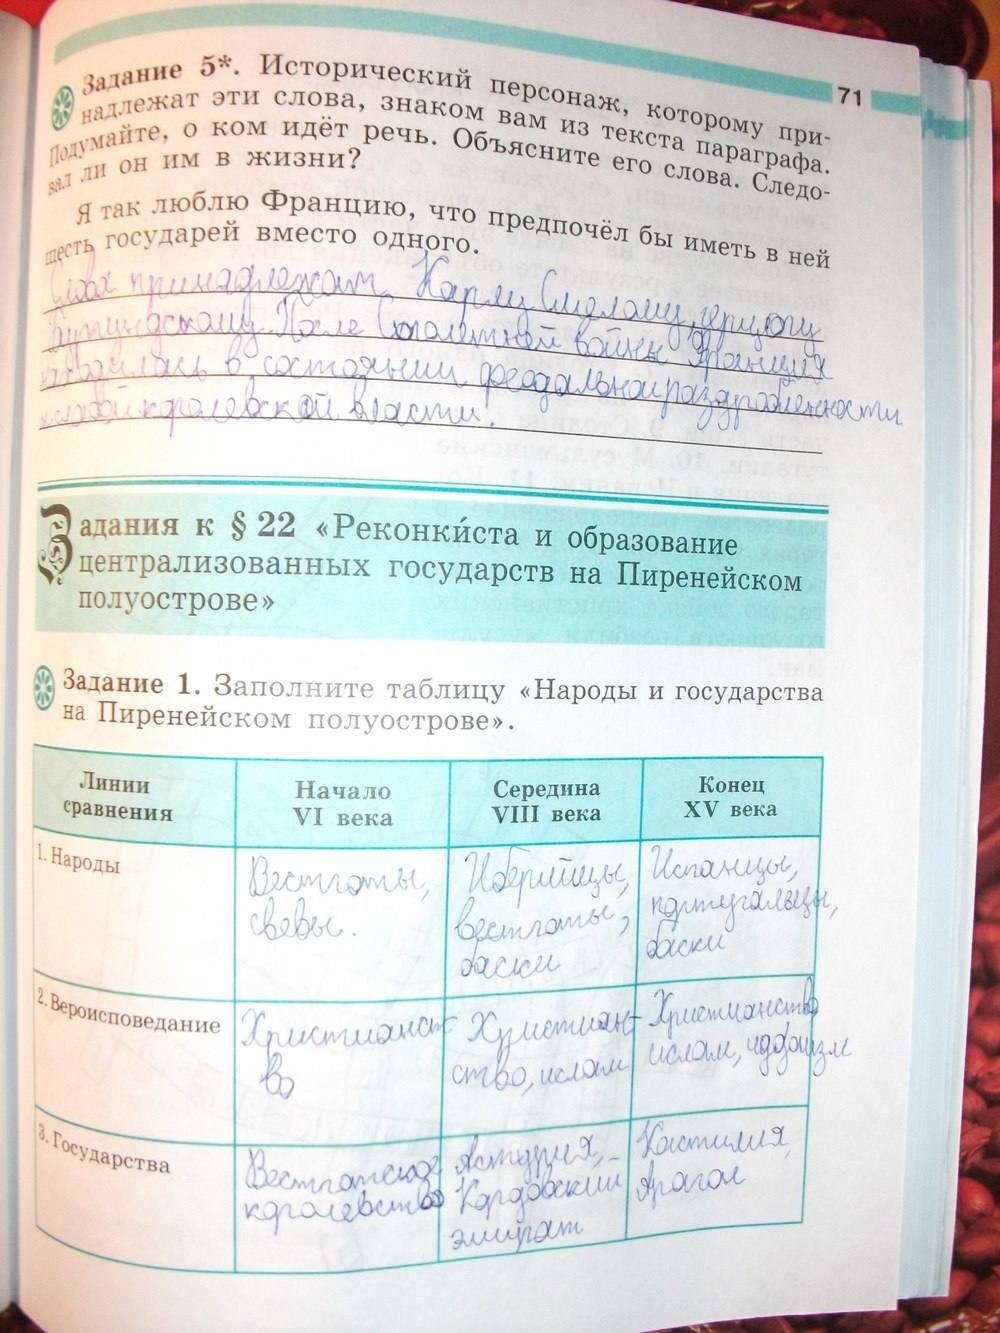 71
Задание 5*. Исторический персонаж, которому при-
надлежат эти слова, знаком вам из текста параграфа.
Подумайте, о ком идёт речь. Объясните его слова. Следо-
вал ли он им в жизни?
Я так люблю Францию, что предпочёл бы иметь в ней
шесть государей вместо одного.
Слова принадлежат Карлу Смелому, герцогу
Бургундскому. После Столетней войны Франция
находилась в состоянии феодальной раздробленности
и слабой королевской власти.
Задания к § 22 «Реконки́ста и образование
централизованных государств на Пиренейском
полуострове»
Задание 1. Заполните таблицу «Народы и государства
на Пиренейском полуострове».
Линии сравнения
Начало VI века
Середина VIII века
Конец XV века
1. Народы
Вестготы,
свевы.
Иберийцы,
вестготы,
баски
Испанцы,
португальцы,
баски
2. Вероисповедание
Христианст-
во
Христиан-
ство, ислам
Христианство
ислам, иудаизм
3. Государства
Вестготское
королевство
Астурия,
Кордовский
эмират
Кастилия,
Арагон